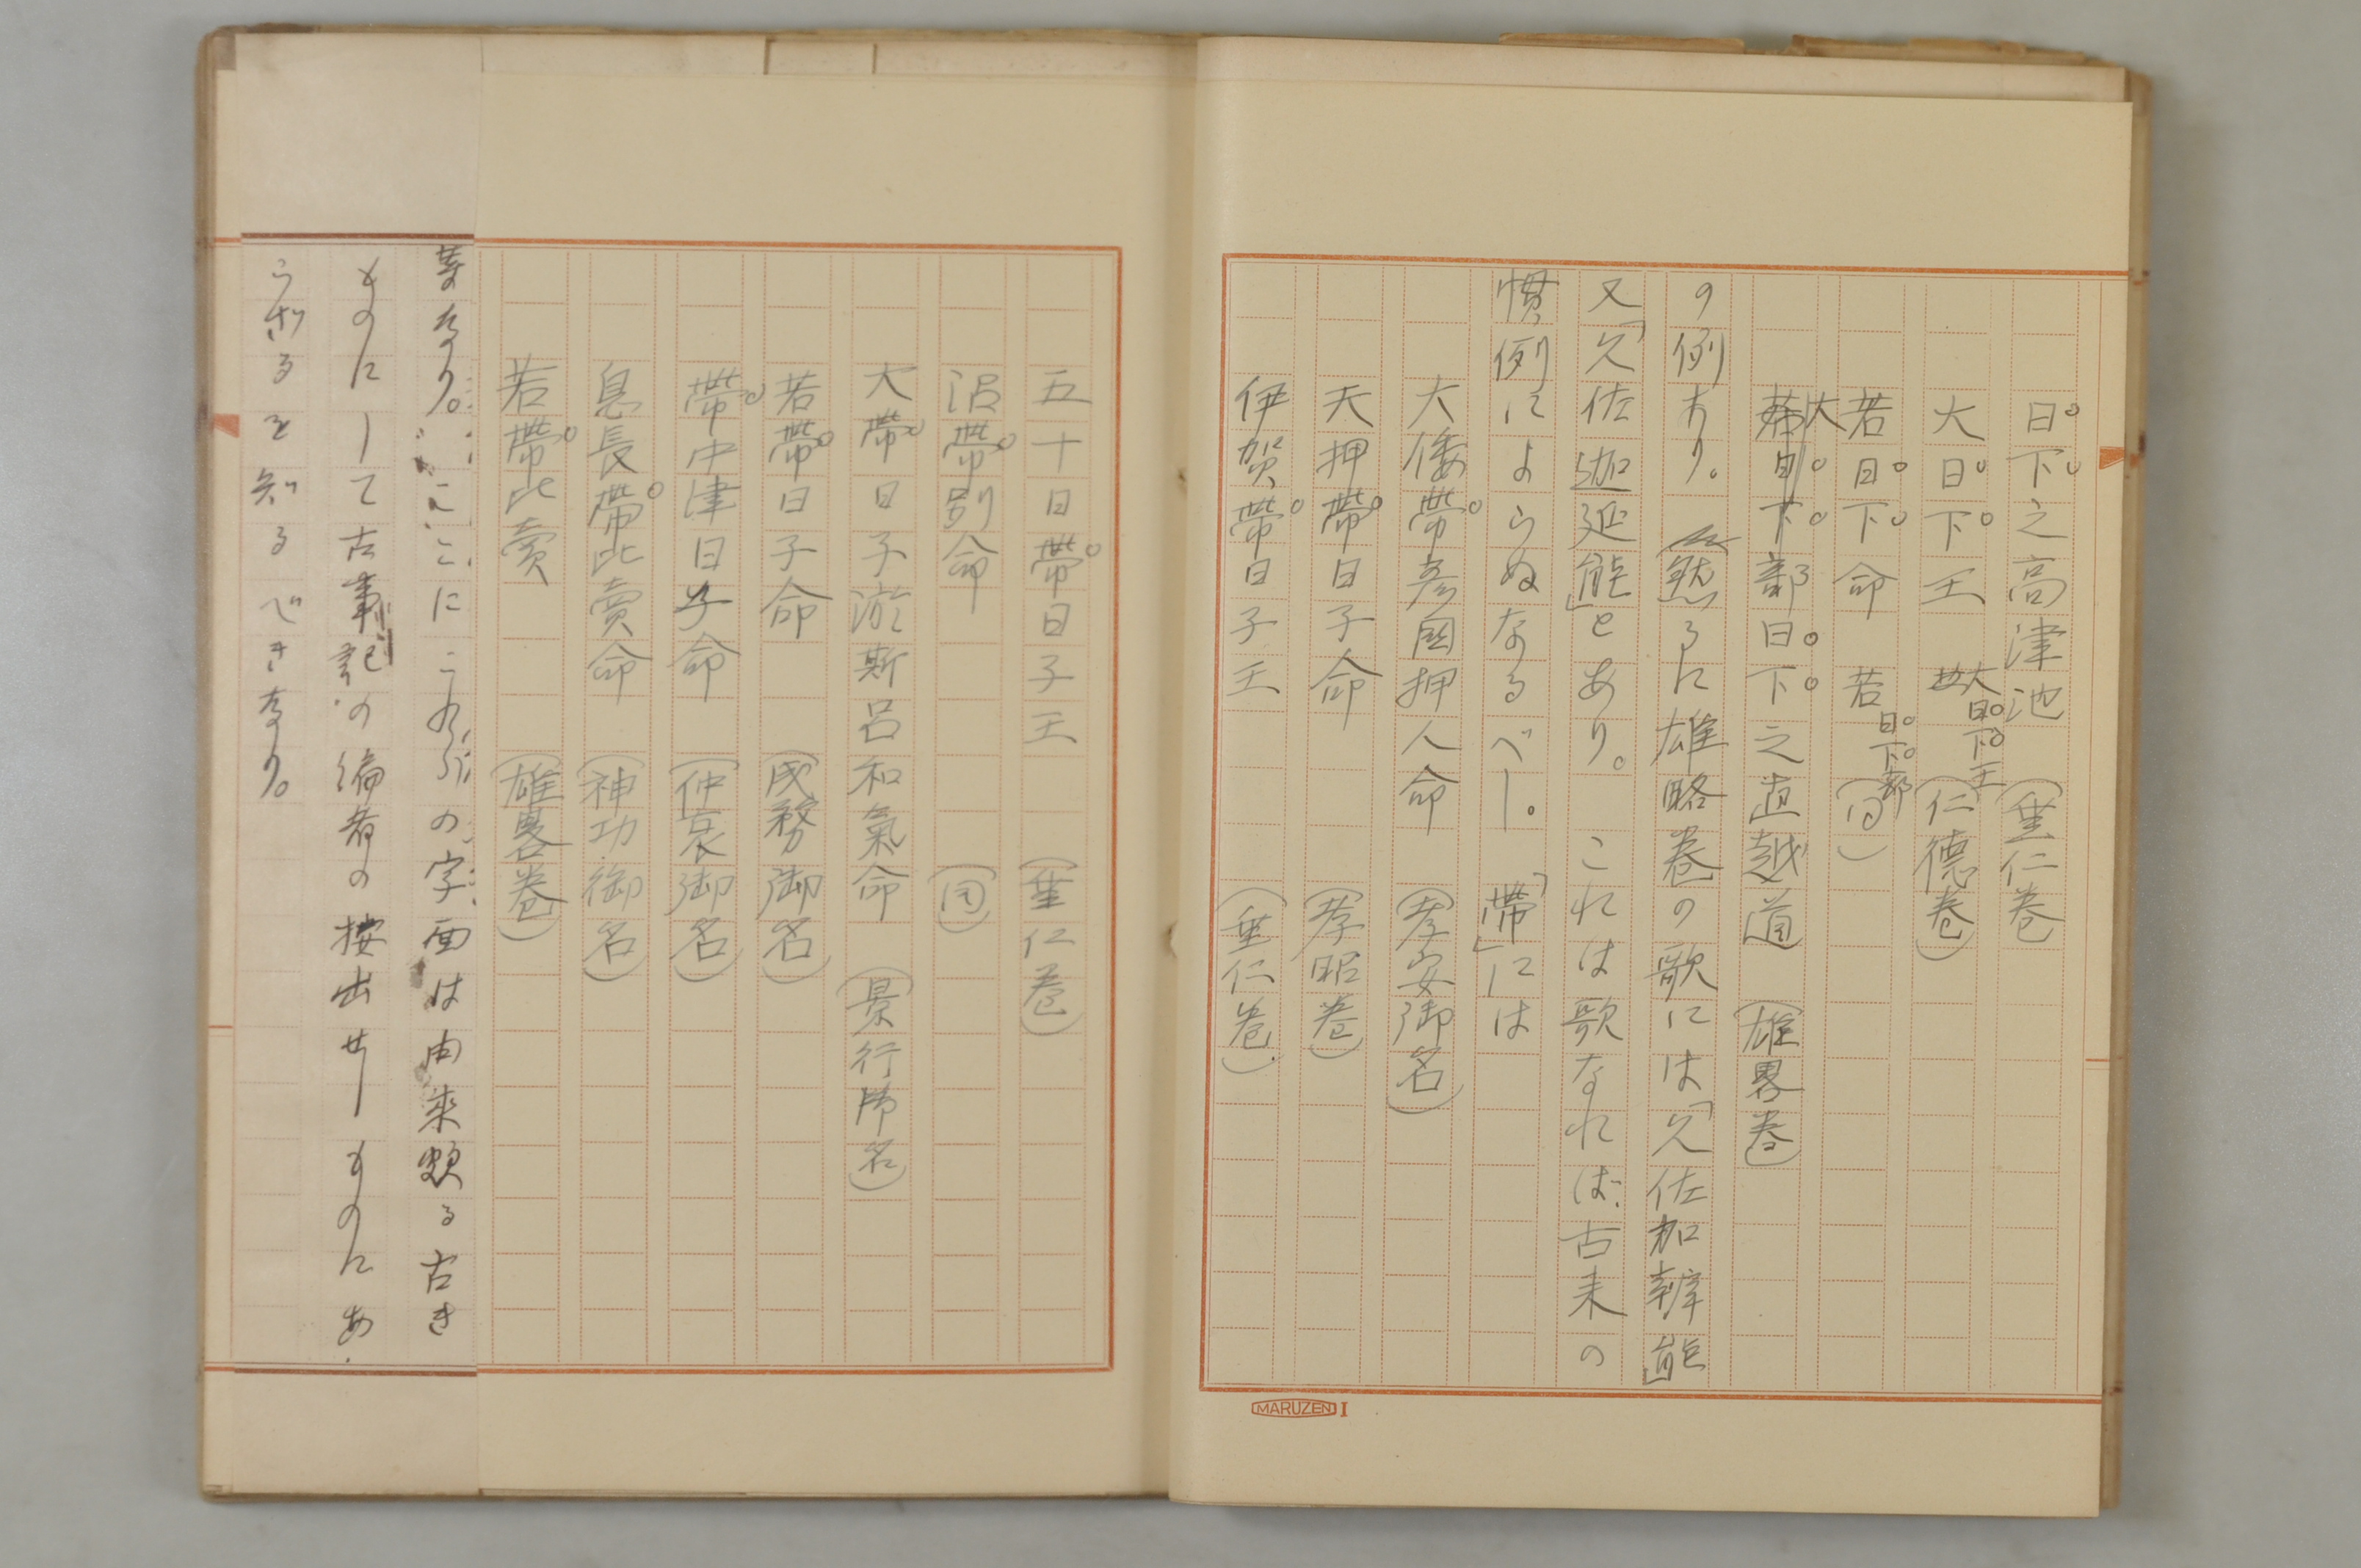 日下之高津池 (垂仁巻
大日下王 大日下王 (仁德巻)
若日下命 若日下部 (同)
大日下部日下之直越道 (雄畧巻)
の例あり。然るに雄略巻の歌には「久佐加辨能」
又「久佐迦延能」とあり。これは歌なれば古来の
慣例によらぬなるべし。「帶」には
大倭帶彦國押人命 (孝安御名)
天押帶日子命 (孝昭巻)
伊賀帶日子王 (垂仁巻)
MARUZEN I
五十日帶日子王 (垂仁巻)
沼帶別命 (同)
大帶日子淤斯呂和氣命 (景行御名)
若帶日子命 (成務御名)
帶中津日子命 (仲哀御名)
息長帶比賣命 (神功御名)
若帶比賣 (雄畧巻)
等なり。ここにこれらの字面は由来頗る古き
ものにして古事記の編者の按出せしものにあ
らざるを知るべきなり。